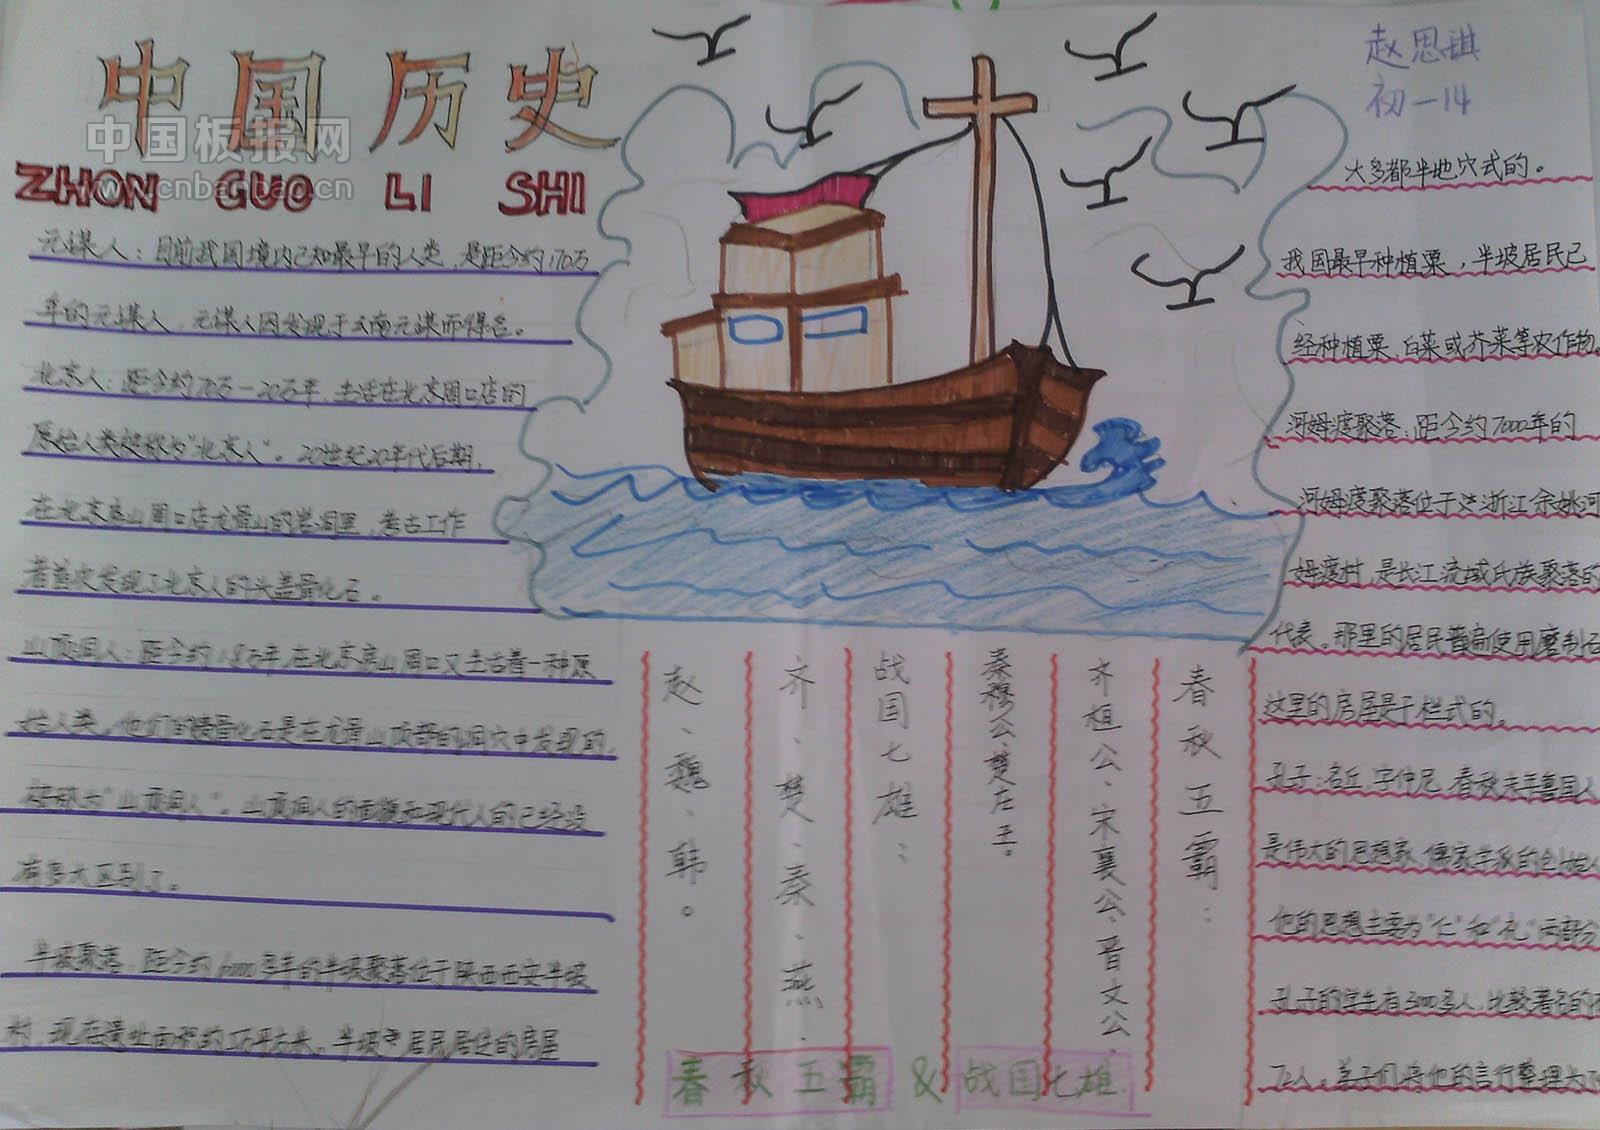 中国历史
中国板报网
www.cnbanbao.cn
ZHON GUO LI SHI
赵思琪
初一14
元谋人：目前我国境内已知最早的人类，是距今约170万
年的元谋人，元谋人因发现于云南元谋而得名。
北京人：距今约70万—20万年，生活在北京周口店的
原始人类被称为"北京人"。20世纪20年代后期，
在北京房山周口店龙骨山的岩洞里，考古工作
者首次发现了北京人的头盖骨化石。
山顶洞人：距今约1.8万年，在北京房山周口又生活着一种原
始人类，他们的骨化石是在龙骨山顶部的洞穴中发现的，
被称为"山顶洞人"。山顶洞人的面貌和现代人的已经没
有多大区别了。
半坡聚落：距今约6000多年的半坡聚落位于陕西西安半坡
村，现在遗址面积约5万平方米。半坡居民居住的房屋
大多都半地穴式的。
我国最早种植粟，半坡居民已
经种植粟、白菜或芥菜等农作物。
河姆渡聚落：距今约7000年的
河姆渡聚落位于浙江余姚河
姆渡村，是长江流域氏族聚落的
代表。那里的居民普遍使用磨制石
这里的房屋是干栏式的。
孔子：名丘，字仲尼，春秋末年鲁国人
是伟大的思想家，儒家学派的创始人
他的思想主要为"仁"和"礼"两部分
孔子的学生有3000多人，比较著名的有
72人。弟子们将他的言行整理为
春秋五霸：
齐桓公、宋襄公、晋文公、
秦穆公、楚庄王。
战国七雄：
齐、楚、秦、燕、
赵、魏、韩。
春秋五霸 & 战国七雄